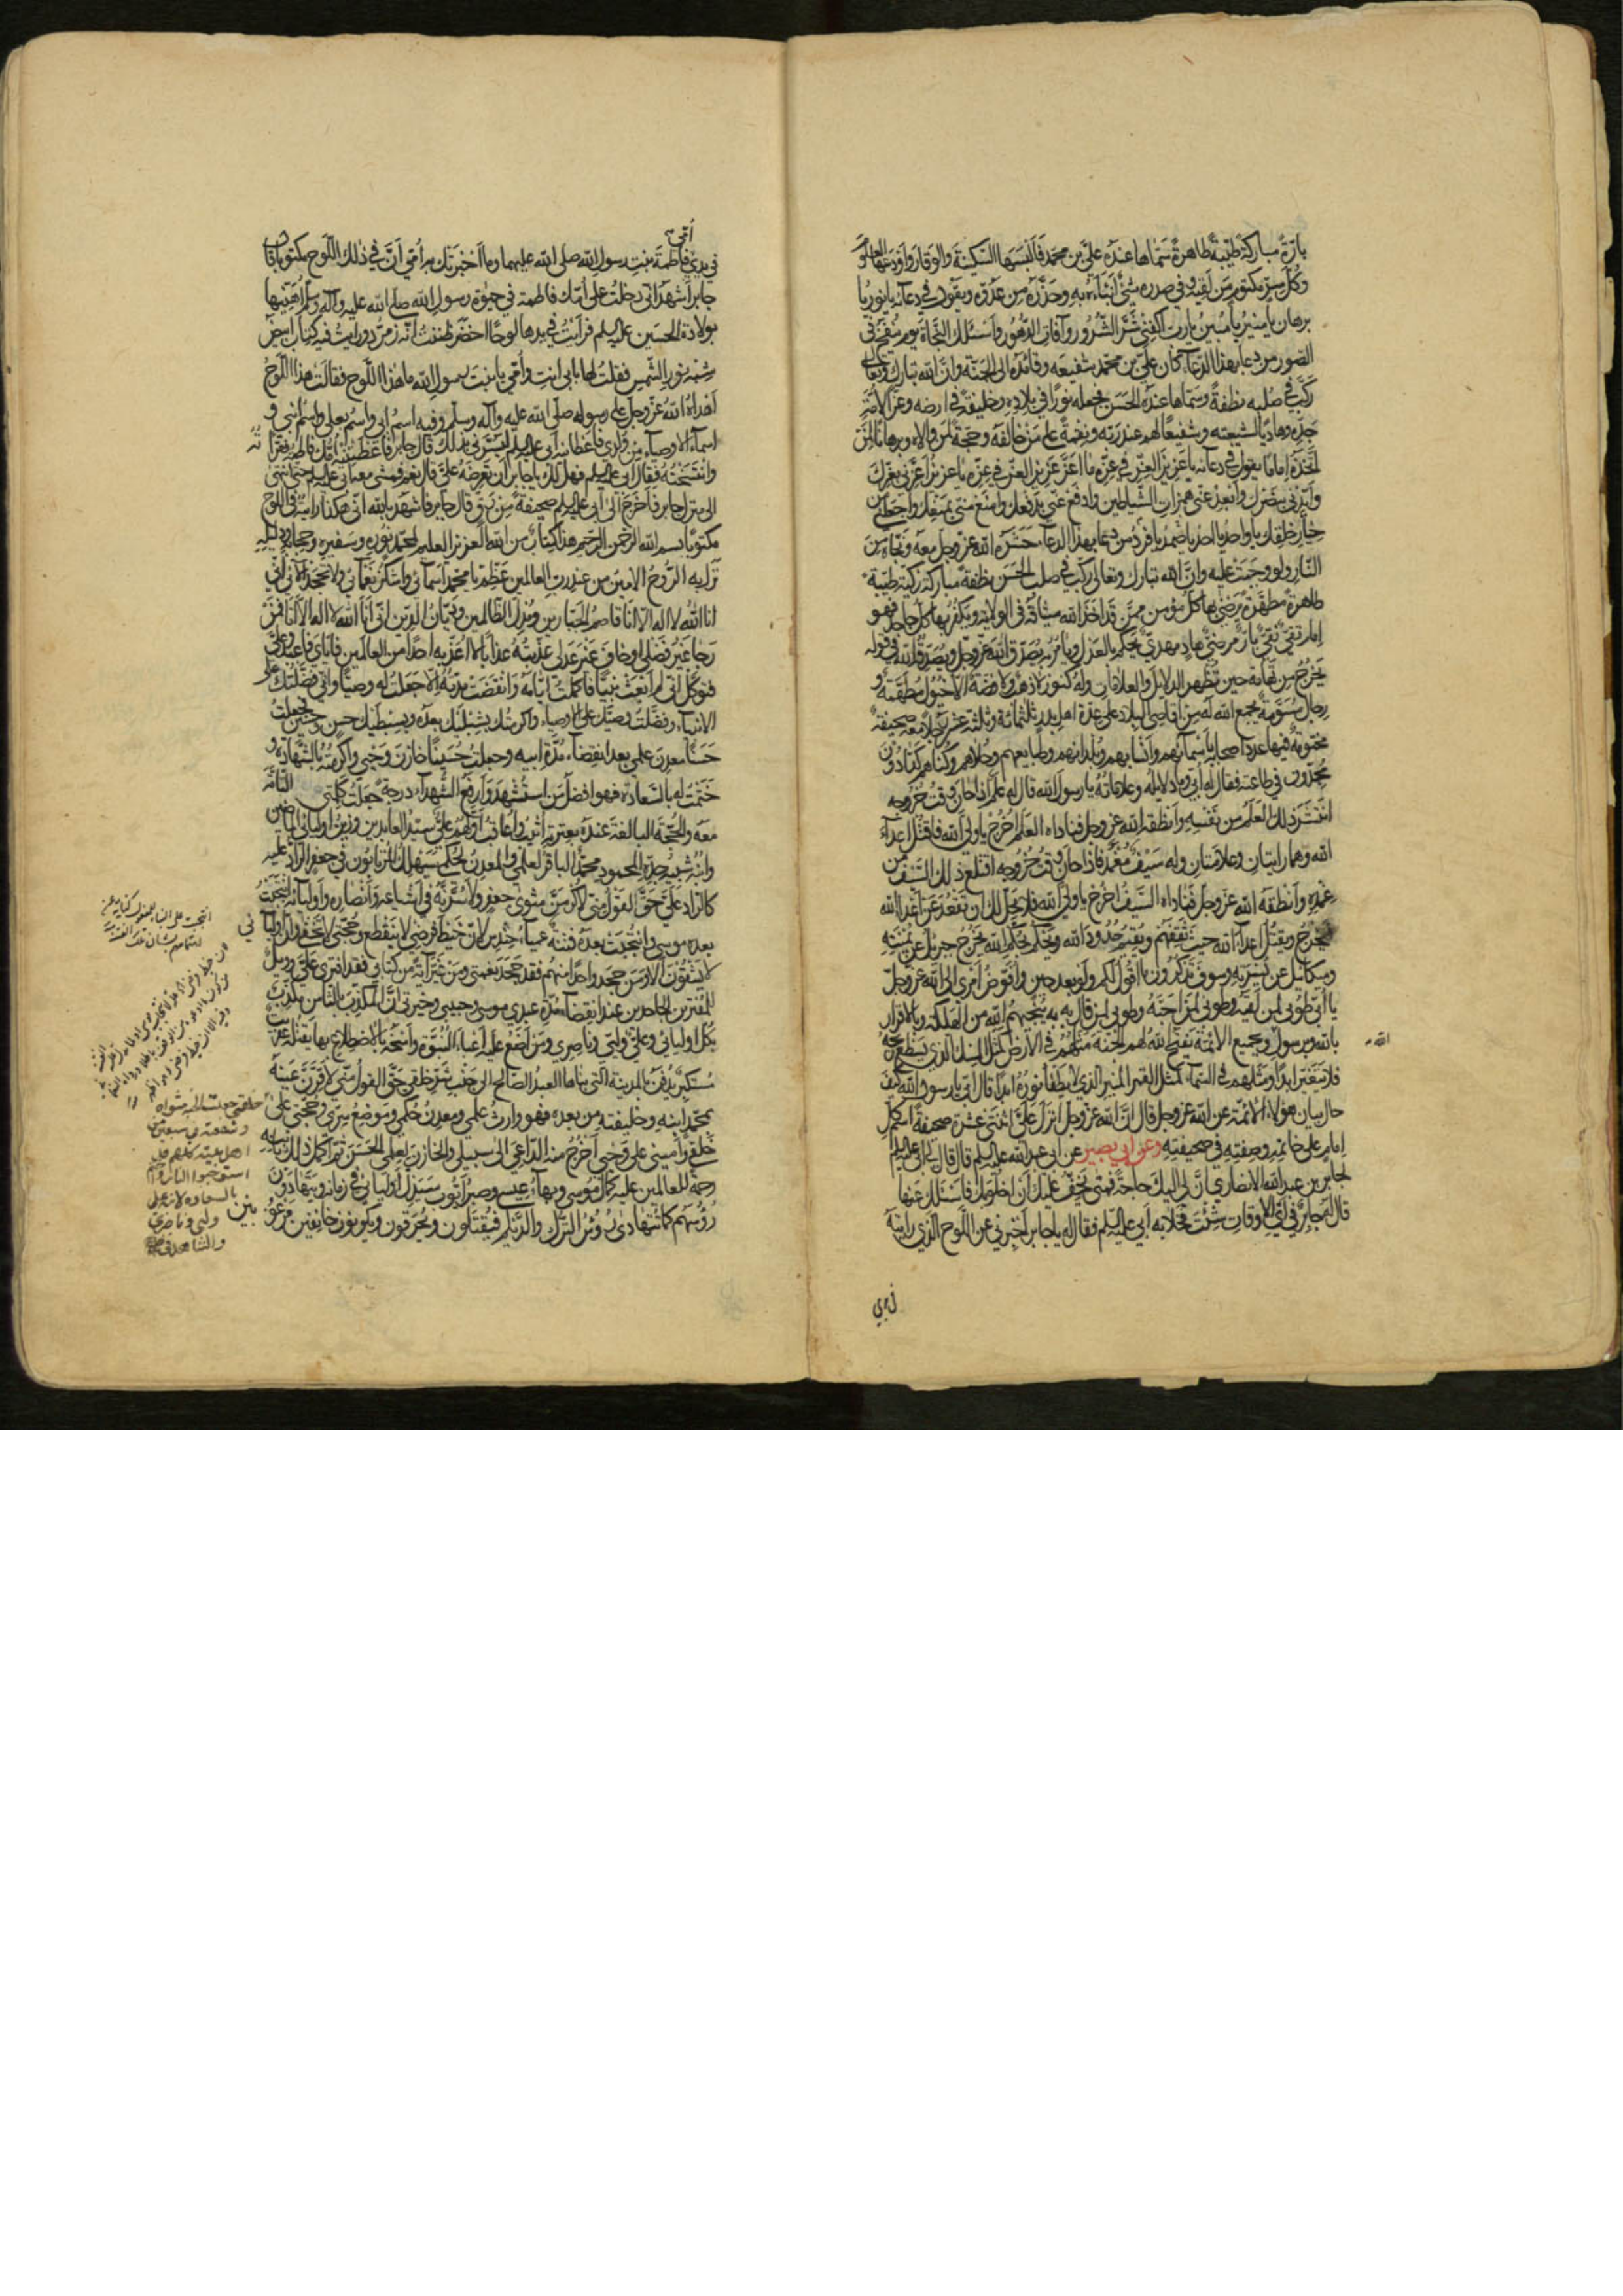 بارّة مباركة طيّبة طاهرة سمّاها عنده عليّ بن محمّد فالبسها السّكينة والوقار واودعها العلوم
وكلّ سرّ مكتوم من لقيه وفى صدره شئ انباءه به وحذّره من عدوّه ويقول فى دعائه يا نور يا
برهان يا منير يا مبين يا ربّ اكفنى شرّ الشّرور وآفات الدّهور واسئلك النّجاة يوم ينفخ فى
الصّور من دعا بهذا الدّعاء كان عليّ بن محمّد شفيعه وقائده الى الجنّة وانّ الله تبارك وتعالى
ركّب فى صلبه نطفة وسمّاها عنده الحسن فجعله نورا فى بلاده وخليفة فى ارضه وعزّا لامّة
جدّه وهاديا لشيعته وشفيعا لهم عند ربّه ونقمة على من خالفه وحجّة لمن والاه وبرهانا لمن
اتّخذه اماما يقول فى دعائه يا عزيز العزّ فى عزّه ما اعزّ عزيز العزّ فى عزّه يا عزيز اعزّنى بعزّك
وايّدنى بنصرك وابعد عنّى همزات الشّياطين وادفع عنّى بدفعك وامنع منّى بمنعك واجعلنى من
خيار خلقك يا واحد يا احد يا صمد يا فرد من دعا بهذا الدّعاء حشره الله عزّ وجلّ معه ونجّاه من
النّار ولو وجبت عليه وانّ الله تبارك وتعالى ركّب فى صلب الحسن نطفة مباركة زكيّة طيّبة
طاهرة مطهّرة يرضى بها كلّ مؤمن ممّن قد اخذ الله ميثاقه فى الولاية ويكفر بها كلّ جاحد فهو
امام تقىّ نقىّ بارّ مرضىّ هاد مهدىّ يحكم بالعدل ويأمر به يصدّق الله عزّ وجلّ ويصدّقه الله فى قوله
يخرج من تهامة حين تظهر الدلايل والعلامات وله كنوز لا ذهب ولا فضّة الا خيول مطهّمة و
رجال مسوّمة يجمع الله له من اقاصى البلاد على عدّة اهل بدر ثلثمائة وثلثة عشر رجلا معه صحيفة
مختومة فيها عدد اصحابه باسمائهم وانسابهم وبلدانهم وطبايعهم وحلاهم وكناهم كدّادون
مجدّون فى طاعته فقال له ابىّ وما دلايله وعلاماته يا رسول الله قال له علم اذا حان وقت خروجه
انتشر ذلك العلم من نفسه وانطقه الله عزّ وجلّ فناداه العلم اخرج يا ولىّ الله فاقتل اعداء
الله وهما رايتان وعلامتان وله سيف مغمد فاذا حان وقت خروجه اقتلع ذلك السّيف من
غمده وانطقه الله عزّ وجلّ فناداه السّيف اخرج يا ولىّ الله فلا يحلّ لك ان تقعد عن اعداء الله
فيخرج ويقتل اعداء الله حيث ثقفهم ويقيم حدود الله ويحكم بحكم الله يخرج جبرئيل عن يمنته
وميكائيل عن يسرته وسوف تذكرون ما اقول لكم ولو بعد حين وافوّض امرى الى الله عزّ وجلّ
يا ابىّ طوبى لمن لقيه وطوبى لمن احبّه وطوبى لمن قال به به ينجيهم الله من الهلكة وبالاقرار
بالله وبرسول وبجميع الائمّة يفتح الله لهم الجنّة مثلهم فى الارض كمثل المسك الذى يسطع ريحه
الله
فلا يتغيّر ابدا ومثلهم فى السّماء كمثل القمر المنير الذى لا يطفأ نوره ابدا قال ابىّ يا رسول الله كيف
حال بيان هؤلاء الائمّة عن الله عزّ وجلّ قال انّ الله عزّ وجلّ انزل علىّ اثنتى عشرة صحيفة اسم كلّ
امام على خاتمه وصفته فى صحيفته وعن ابى بصير عن ابى عبد الله عليه السلم قال قال ابى عليه السلم
لجابر بن عبد الله الانصارى انّ لى اليك حاجة فمتى يخفّ عليك ان اخلو بك فاسئلك عنها
قال له جابر فى اىّ الاوقات شئت فخلا به ابى عليه السّلم فقال له يا جابر اخبرنى عن اللّوح الذى رايته
فى يدى
امّى
فى يدى فاطمة بنت رسول الله صلّى الله عليهما وما اخبرتك به امّى انّ فى ذلك اللّوح مكتوبا قال
جابر اشهد انّى دخلت على امّك فاطمة فى حيوة رسول الله صلى الله عليه وآله وسلّم اهنّيها
بولادة الحسين عليه السلم فرايت فى يدها لوحا اخضر ظننت انّه زمرّد ورايت فيه كتابا ابيض
شبه نور الشّمس فقلت لها بابى انت وامّى يا بنت رسول الله ما هذا اللّوح فقالت هذا اللّوح
اهداه الله عزّ وجلّ على رسوله صلّى الله عليه وآله وسلّم وفيه اسم ابى واسم بعلى واسم ابنىّ و
اسماء الاوصياء من ولدى فاعطانيه ابى عليه السلم ليسرّنى بذلك قال جابر فاعطتنيه امّك فاطمة فقرأته
وانتسخته فقال ابى عليه السلم فهل لك يا جابر ان تعرضه علىّ قال نعم فمشى معه ابى عليه السلم حتّى انتهى
الى منزل جابر فاخرج الى ابى عليه السلم صحيفة من رقّ قال جابر فاشهد بالله انّى هكذا رايته فى اللّوح
مكتوبا بسم الله الرّحمن الرّحيم هذا كتاب من الله العزيز العليم لمحمّد نوره وسفيره وحجابه ودليله
نزل به الرّوح الامين من عند ربّ العالمين عظّم يا محمّد اسمائى واشكر نعمائى ولا تجحد آلائى انّى
انا الله لا اله الّا انا قاصم الجبّارين ومذلّ الظّالمين وديّان الدّين انّى انا الله لا اله الّا انا فمن
رجا غير فضلى او خاف غير عدلى عذّبته عذابا لا اعذّبه احدا من العالمين فايّاى فاعبد وعلىّ
فتوكّل انّى لم ابعث نبيّا فاكملت ايّامه وانقضت مدّته الّا جعلت له وصيّا وانّى فضّلتك على
الانبياء وفضّلت وصيّك على الاوصياء واكرمتك بشبليك بعده وبسبطيك حسن وحسين فجعلت
حسنا معدن علمى بعد انقضاء مدّة ابيه وجعلت حسينا خازن وحيى واكرمته بالشّهادة و
ختمت له بالسّعادة فهو افضل من استشهد وارفع الشّهداء درجة جعلت كلمتى التّامّة
معه والحجّة البالغة عنده بعترته اثيب واعاقب اوّلهم علىّ سيّد العابدين وزين اوليائى الماضين
وابنه شبيه جدّه المحمود محمّد الباقر لعلمى والمعدن لحكمى سيهلك المرتابون فى جعفر الرّادّ عليه
كالرّادّ علىّ حقّ القول منّى لاكرمنّ مثوى جعفر ولاسرّنّه فى اشياعه وانصاره واوليائه انتجبت
بعده موسى وانتجبت بعده فتنة عمياء حندس لانّ خيط فرضى لا ينقطع وحجّتى لا تخفى وانّ اوليائى
لا يشقون الا ومن جحد واحدا منهم فقد جحد نعمتى ومن غيّر آية من كتابى فقد افترى علىّ وويل
للمفترين الجاحدين عند انقضاء مدّة عبدى موسى وحبيبى وخيرتى انّ المكذّب بالثّامن مكذّب
بكلّ اوليائى وعلىّ وليّى وناصرى ومن اضع عليه اعباء النّبوّة وامنحه بالاضطلاع بها يقتله عفريت
مستكبر يدفن بالمدينة التى بناها العبد الصّالح الى جنب شرّ خلقى حقّ القول منّى لاقرّنّ عينه
بمحمّد ابنه وخليفته من بعده فهو وارث علمى ومعدن حكمى وموضع سرّى وحجّتى على
خلقى وامينى على وحيى اخرج منه الدّاعى الى سبيلى والخازن لعلمى الحسن ثمّ اكمل ذلك بابنه
رحمة للعالمين عليه كمال موسى وبهاء عيسى وصبر ايّوب سيذلّ اوليائى فى زمانه ويتهادون
رؤسهم كما تتهادى رؤس التّرك والدّيلم فيقتلون ويحرقون ويكونون خائفين مرعوبين
خلقى جعلت الجنة مثواه
وشفعته فى سبعين
اهل بيته كلهم قد
استوجبوا النار واختم
بالسعادة لابنه على
وليى وناصرى
والشاهد فى